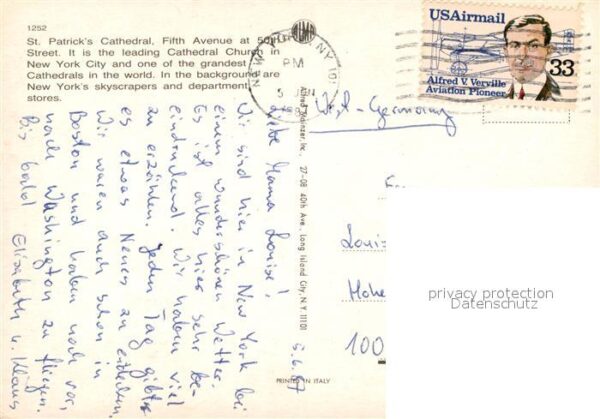 1252
St. Patrick's Cathedral, Fifth Avenue at 50th
Street. It is the leading Cathedral Church in
New York City and one of the grandest
Cathedrals in the world. In the background are
New York's skyscrapers and department
stores.
5.6.87
Liebe Mama Louise!
Wir sind hier in New York bei
einem wunderschönen Wetter.
Es ist alles hier sehr be-
eindruckend. Wir haben viel
zu erzählen. Jeden Tag gibt es
es etwas Neues zu erleben.
Wir waren auch schon in
Boston und haben noch vor,
nach Washington zu fliegen.
Bis bald Elisabeth u. Klaus
Alfred Mainzer, Inc., 27-08 40th Ave., Long Island City, N.Y. 11101
PRINTED IN ITALY
NEW YORK NY
PM
5 JUN
USAirmail
33
Alfred V. Verville
Aviation Pioneer
West-Germany
Louis
Hohe
100
privacy protection
Datenschutz